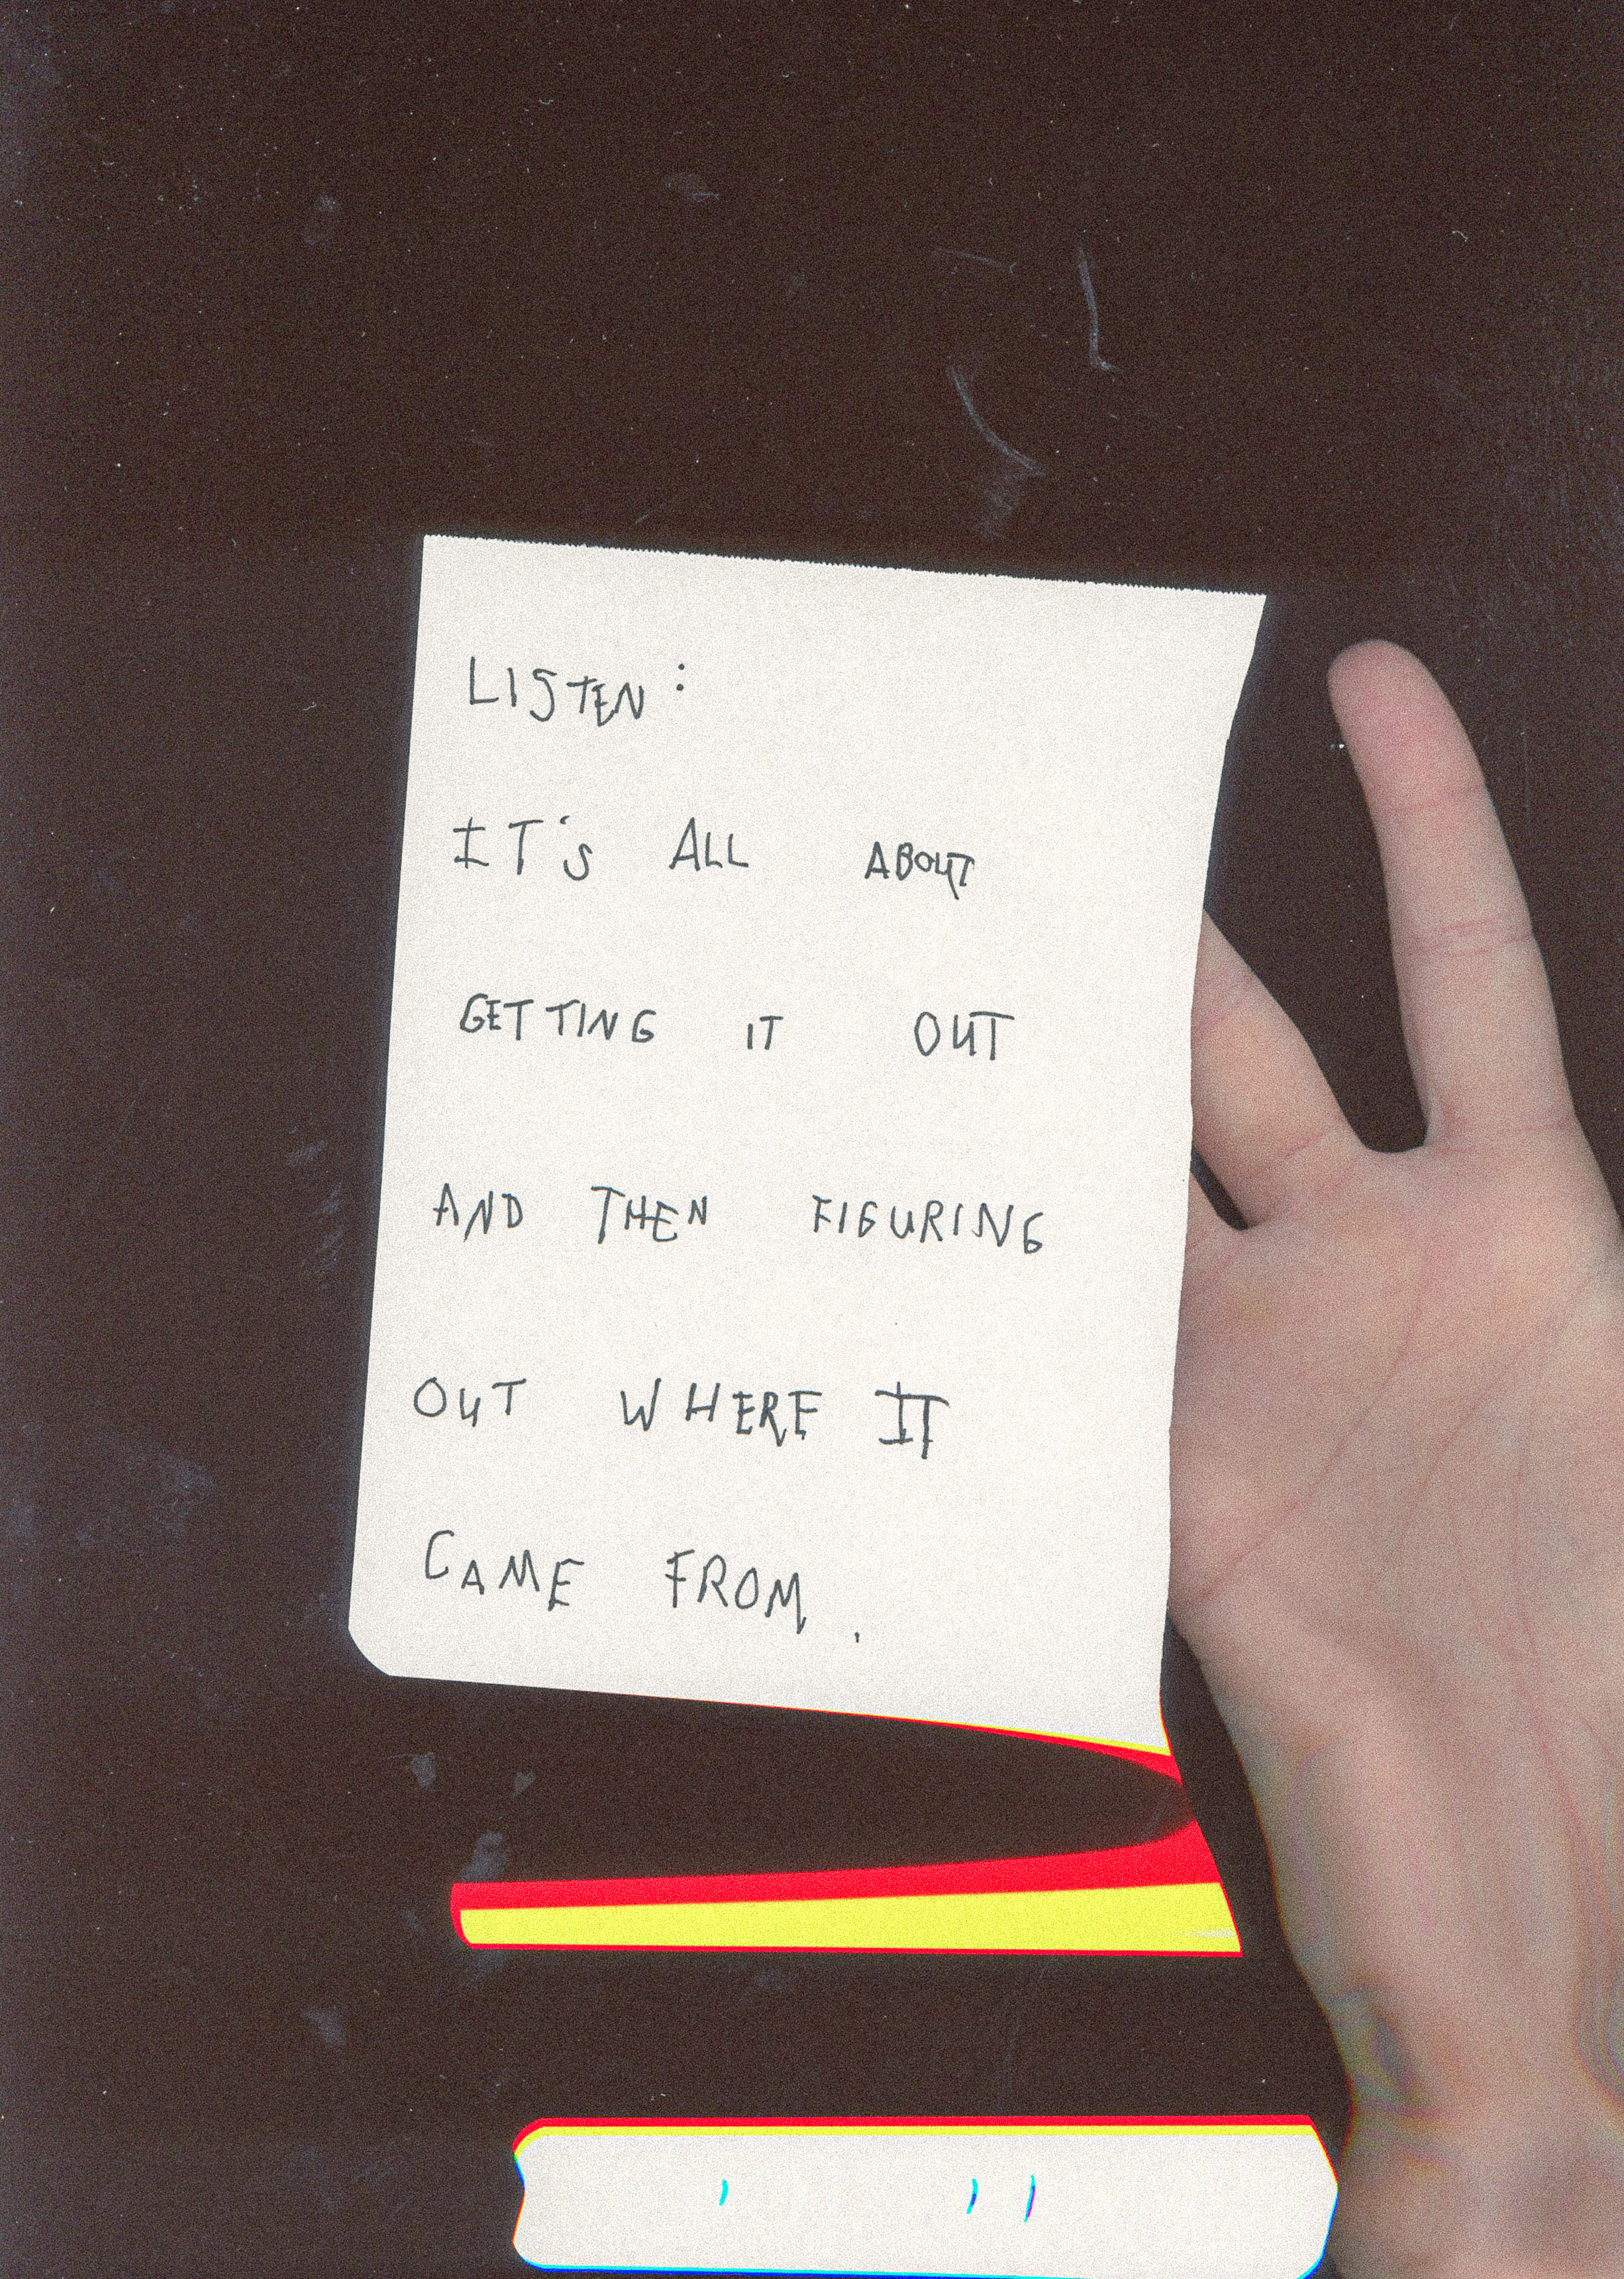 LISTEN:
IT'S ALL ABOUT
GETTING IT OUT
AND THEN FIGURING
OUT WHERE IT
CAME FROM.